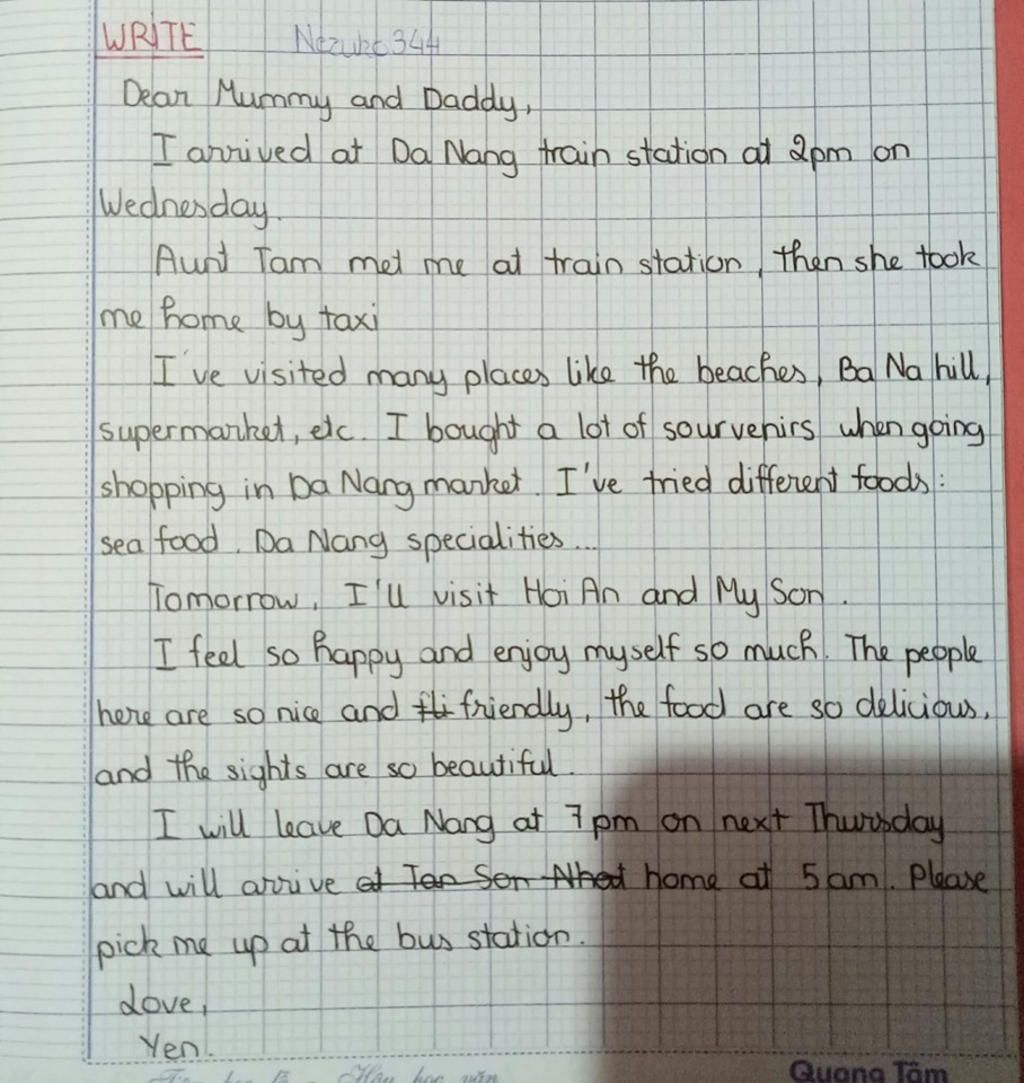 WRITE Nezuko344
Dear Mummy and Daddy,
I arrived at Da Nang train station at 2pm on
Wednesday.
Aunt Tam met me at train station, then she took
me home by taxi
I've visited many places like the beaches, Ba Na hill,
supermarket, etc. I bought a lot of sourvenirs when going
shopping in Da Nang market. I've tried different foods:
sea food, Da Nang specialities...
Tomorrow, I'll visit Hoi An and My Son.
I feel so happy and enjoy myself so much. The people
here are so nice and fli friendly, the food are so delicious,
and the sights are so beautiful.
I will leave Da Nang at 7pm on next Thursday
and will arrive at Tan Son Nhat home at 5am. Please
pick me up at the bus station.
Love,
Yen.
học văn
Quang Tâm